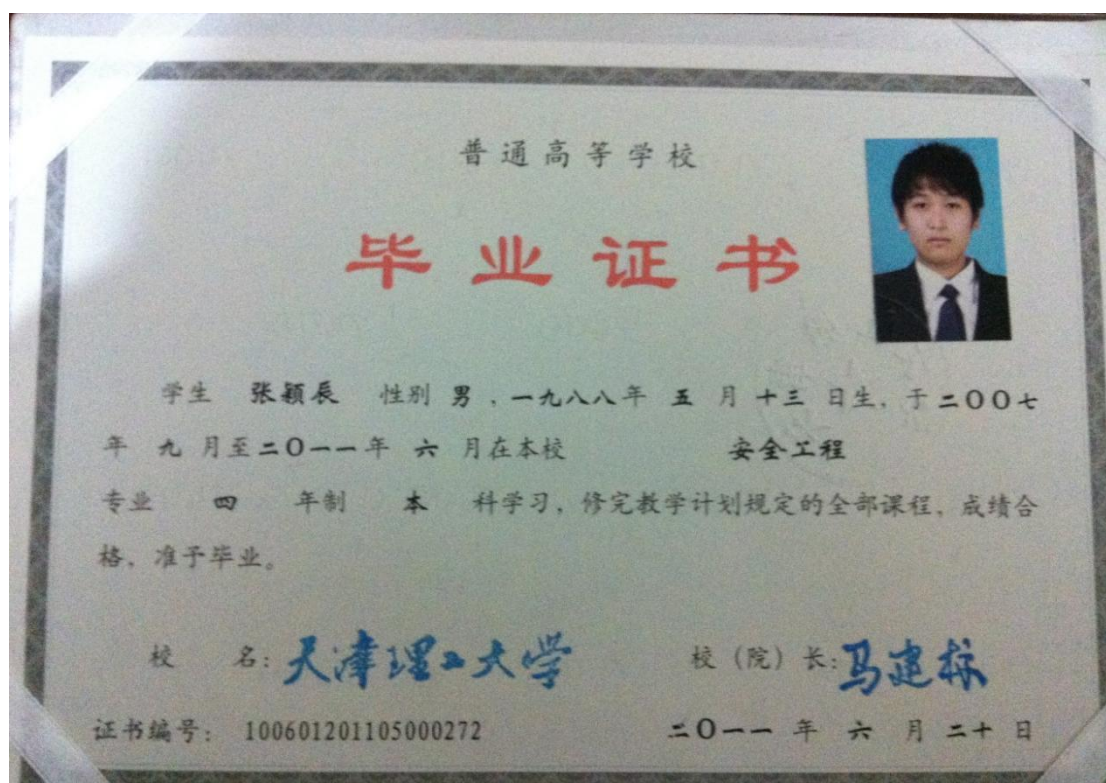 普通高等学校
毕业证书
学生 张颖辰 性别 男，一九八八年 五 月 十三 日生，于二〇〇七
年 九 月至二〇一一年 六 月在本校 安全工程
专业 四 年制 本 科学习，修完教学计划规定的全部课程，成绩合
格，准予毕业。
校 名：天津理工大学 校（院）长：马建标
证书编号： 100601201105000272 二〇一一 年 六 月 二十 日